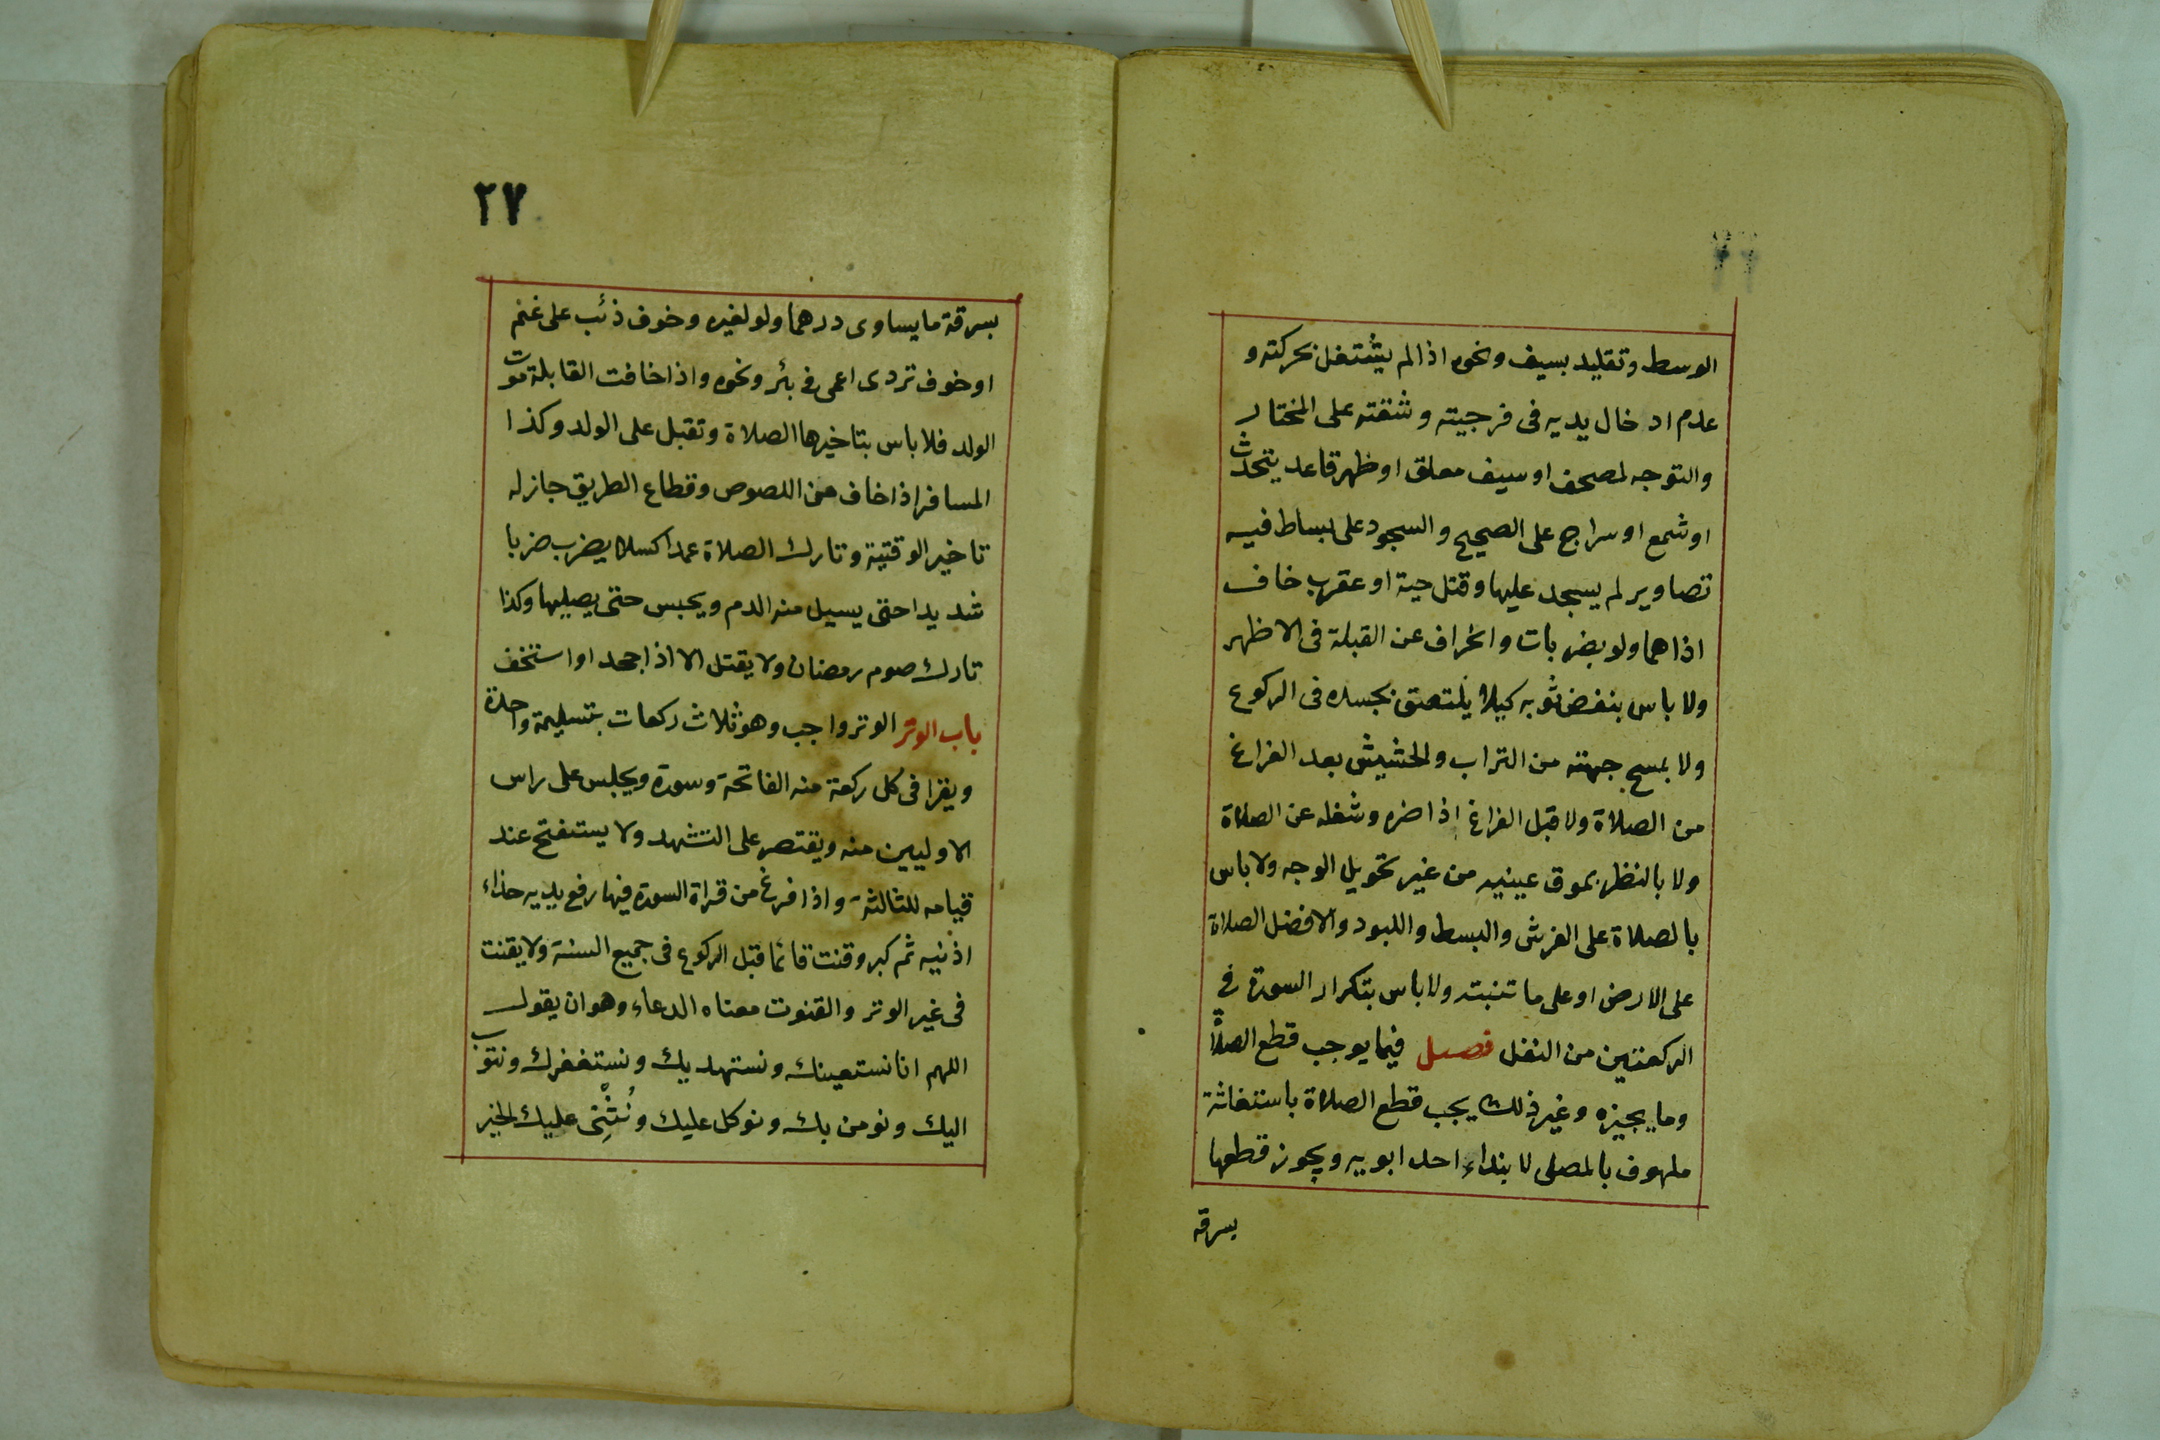 الوسط وتقليد بسيف ونحوه اذا لم يشتغل بحركته و
عدم ادخال يديه فى فرجيته وشقته على المختار
والتوجه لمصحف او سيف معلق او ظهر قاعد يتحدث
او شمع او سراج على الصحيح والسجود على بساط فيه
تصاوير لم يسجد عليها وقتل حية او عقرب خاف
اذاهما ولو بضربات وانحراف عن القبلة فى الاظهر
ولا باس بنفض ثوبه كيلا يلتصق بجسده فى الركوع
ولا بمسح جبهته من التراب والحشيش بعد الفراغ
من الصلاة ولا قبل الفراغ اذا ضره وشغله عن الصلاة
ولا بالنظر بموق عينيه من غير تحويل الوجه ولا باس
بالصلاة على الفرش والبسط واللبود والافضل الصلاة
على الارض او على ما تنبته ولا باس بتكرار السورة في
الركعتين من النفل فصل فيما يوجب قطع الصلاة
وما يجيزه وغير ذلك يجب قطع الصلاة باستغاثة
ملهوف بالمصلى لا بنداء احد ابويه ويجوز قطعها
بسرقه
٢٧
بسرقة ما يساوى درهما ولو لغيره وخوف ذئب على غنم
او خوف تردى اعمى فى بئر ونحوه واذا خافت القابلة موت
الولد فلا باس بتاخيرها الصلاة وتقبل على الولد وكذا
المسافر اذا خاف من اللصوص وقطاع الطريق جاز له
تاخير الوقتية وتارك الصلاة عمدا كسلا يضرب ضربا
شديدا حتى يسيل منه الدم ويحبس حتى يصليها وكذا
تارك صوم رمضان ولا يقتل الا اذا جحد او استخف
باب الوتر الوتر واجب وهو ثلاث ركعات بتسليمة واحدة
ويقرا فى كل ركعة منه الفاتحة وسورة ويجلس على راس
الاوليين منه ويقتصر على التشهد ولا يستفتح عند
قيامه للثالثة واذا فرغ من قراة السورة فيها رفع يديه حذاء
اذنيه ثم كبر وقنت قائما قبل الركوع فى جميع السنة ولا يقنت
فى غير الوتر والقنوت معناه الدعاء وهو ان يقول
اللهم انا نستعينك ونستهديك ونستغفرك ونتوب
اليك ونومن بك ونوكل عليك ونُثْنِى عليك الخير